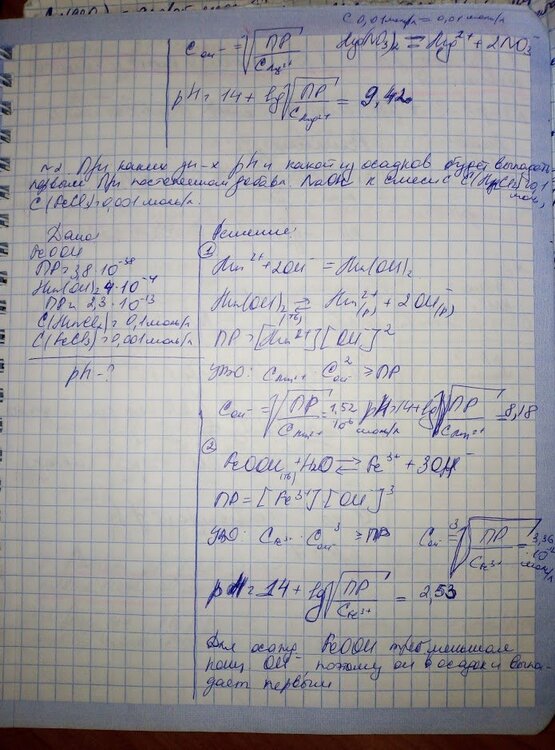 C 0,01 моль/л = 0,01 моль/л
C OH⁻ = √(ПР / C Mg²⁺) Mg(NO₃)₂ = Mg²⁺ + 2NO₃⁻
pH = 14 + lg √(ПР / C Mg²⁺) = 9,42
При каких зн-х pH и какой из осадков будет выпадать
первым при постепенном добавл. NaOH к смеси с C(MnCl₂) = 0,1
моль/л,
C(FeCl₃) = 0,001 моль/л.
Дано
FeOOH
ПР = 3,8 · 10⁻³⁸
Mn(OH)₂
ПР = 2,3 · 10⁻¹³
C(MnCl₂) = 0,1 моль/л
C(FeCl₃) = 0,001 моль/л
pH - ?
Решение:
①
Mn²⁺ + 2OH⁻ = Mn(OH)₂
Mn(OH)₂ (тв) ⇄ Mn²⁺(р) + 2OH⁻(р)
ПР = [Mn²⁺][OH⁻]²
УВО: C Mn²⁺ · C² OH⁻ ≥ ПР
C OH⁻ = √(ПР / C Mn²⁺) = 1,52 · 10⁻⁶ моль/л pH = 14 + lg √(ПР / C Mn²⁺) = 8,18
②
FeOOH (тв) + H₂O ⇄ Fe³⁺ + 3OH⁻
ПР = [Fe³⁺][OH]³
УВО: C Fe³⁺ · C³ OH⁻ ≥ ПР C OH⁻ = ³√(ПР / C Fe³⁺) = 3,36 · 10⁻¹² моль/л
pH = 14 + lg √(ПР / C Fe³⁺) = 2,53
Для осажд. FeOOH треб. меньшая
конц. OH⁻, поэтому он в осадок и выпа-
дает первым